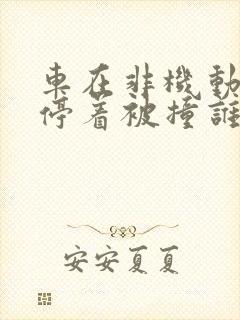 車在非機動
停着被撞誰
安安夏夏